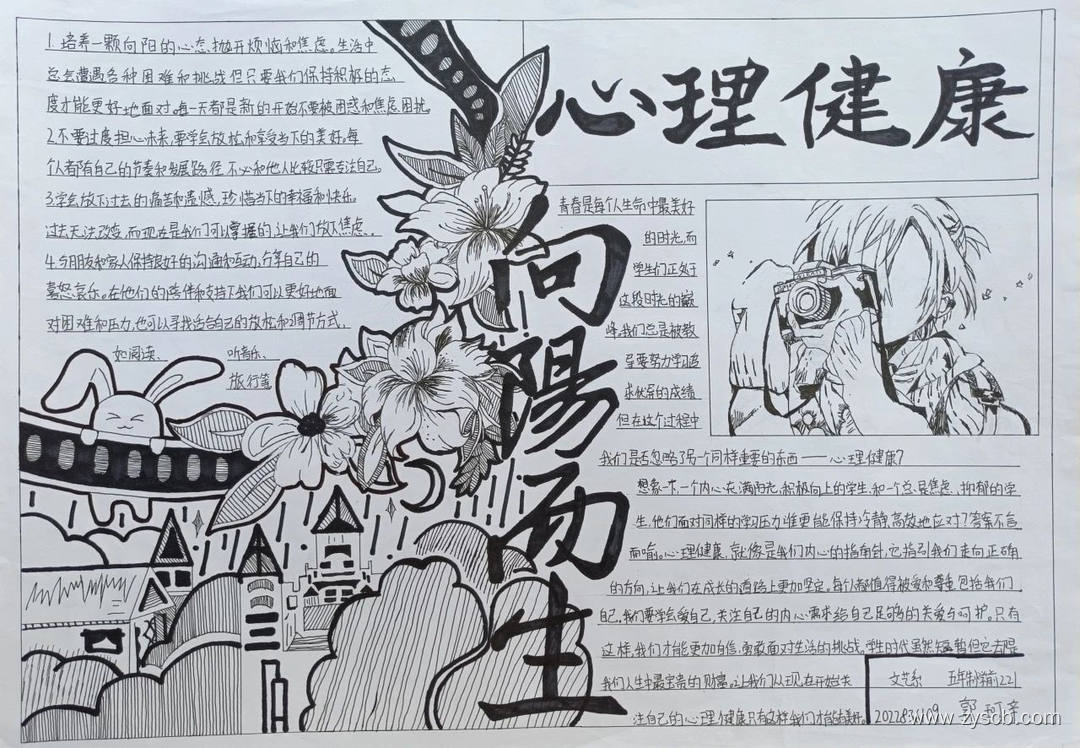 1.培养一颗向阳的心态,抛开烦恼和焦虑。生活中
总会遭遇各种困难和挑战但只要我们保持积极的态
度才能更好地面对。每一天都是新的开始不要被困惑和焦虑困扰。
2.不要过度担心未来,要学会放松和享受当下的美好。每
个人都有自己的节奏和发展路径,不必和他人比较只需专注自己。
3.学会放下过去的痛苦和遗憾,珍惜当下的幸福和快乐。
过去无法改变,而现在是我们可以掌握的,让我们放下焦虑..
4.与朋友和家人保持良好的沟通和互动,分享自己的
喜怒哀乐。在他们的陪伴和支持下我们可以更好地面
对困难和压力,也可以寻找适合自己的放松和调节方式,
如阅读、 听音乐、
旅行等
心理健康
向陽而生
青春是每个人生命中最美好
的时光,而
学生们正处于
这段时光的巅
峰,我们总是被教
导要努力学习追
求优秀的成绩
但在这个过程中
我们是否忽略了另一个同样重要的东西——心理健康?
想象一下,一个内心充满阳光,积极向上的学生,和一个总是焦虑,抑郁的学
生,他们面对同样的学习压力,谁更能保持冷静,高效地应对?答案不言
而喻。心理健康,就像是我们内心的指南针,它指引我们走向正确
的方向,让我们在成长的道路上更加坚定。每个人都值得被爱和尊重,包括我们
自己,我们要学会爱自己,关注自己的内心需求给自己足够的关爱与呵护。只有
这样,我们才能更加自信,勇敢面对生活的挑战。学生时代虽然短暂但它去是
我们人生中最宝贵的财富。让我们从现在开始关
注自己的心理健康只有这样我们才能
文艺系 五年制学前221
郭
2022836109
www.zysobi.com